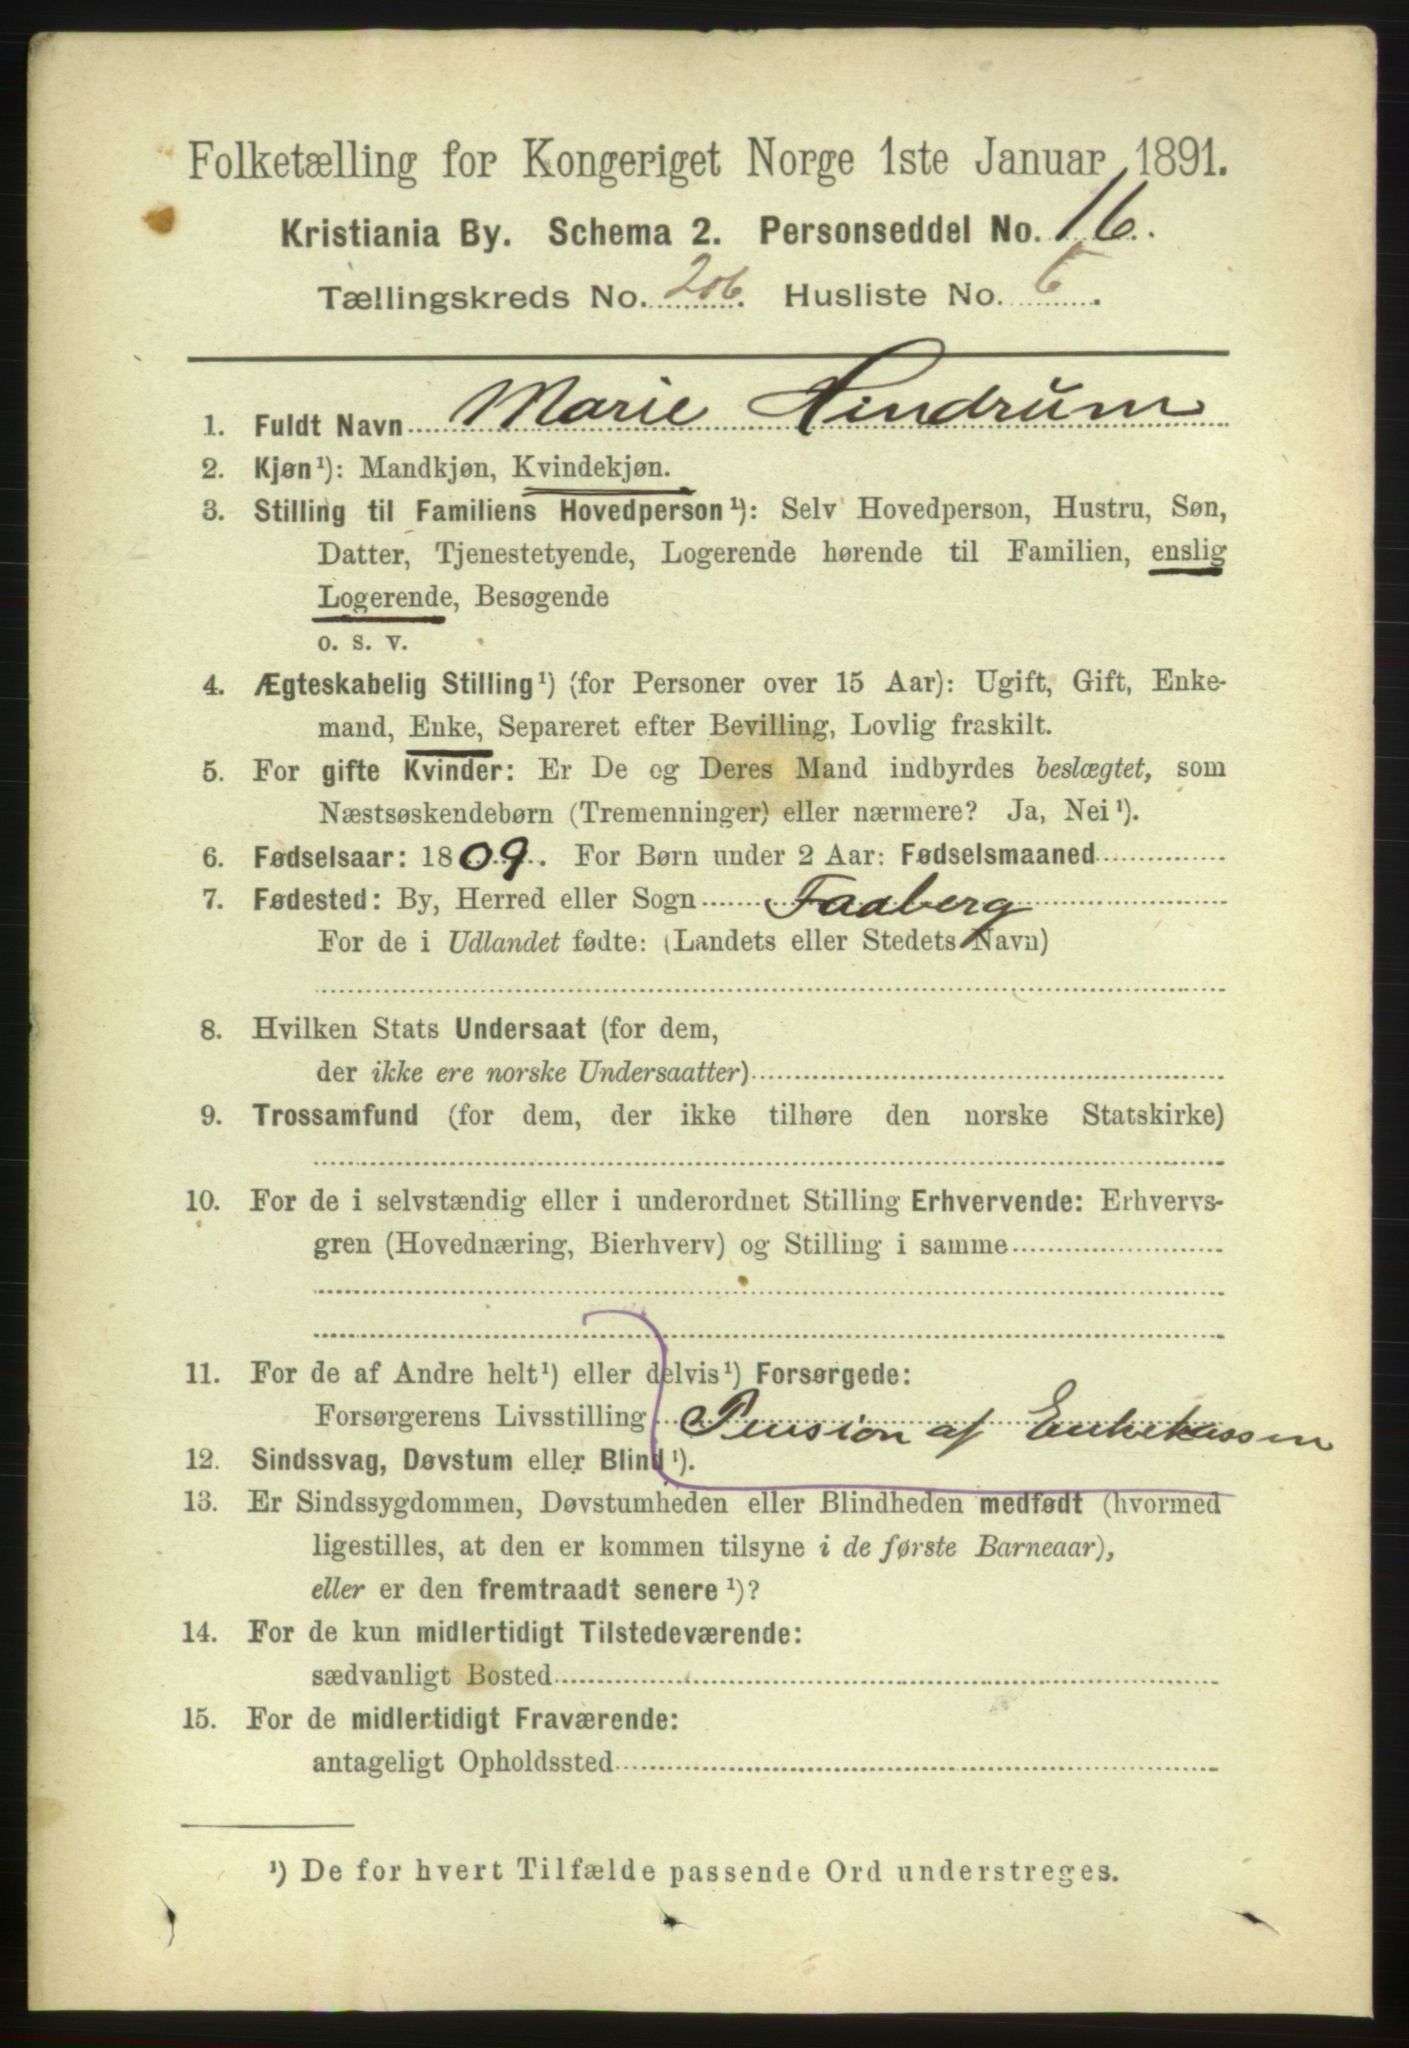 Folketælling for Kongeriget Norge 1ste Januar 1891.
Kristiania By. Schema 2. Personseddel No. 16.
Tællingskreds No. 206. Husliste No. 6.
1. Fuldt Navn Marie Hindrum
2. Kjøn¹): Mandkjøn, Kvindekjøn.
3. Stilling til Familiens Hovedperson¹): Selv Hovedperson, Hustru, Søn,
Datter, Tjenestetyende, Logerende hørende til Familien, enslig
Logerende, Besøgende
o. s. v.
4. Ægteskabelig Stilling¹) (for Personer over 15 Aar): Ugift, Gift, Enke-
mand, Enke, Separeret efter Bevilling, Lovlig fraskilt.
5. For gifte Kvinder: Er De og Deres Mand indbyrdes beslægtet, som
Næstsøskendebørn (Tremenninger) eller nærmere? Ja, Nei¹).
6. Fødselsaar: 1809. For Børn under 2 Aar: Fødselsmaaned
7. Fødested: By, Herred eller Sogn Faaberg
For de i Udlandet fødte: (Landets eller Stedets Navn)
8. Hvilken Stats Undersaat (for dem,
der ikke ere norske Undersaatter)
9. Trossamfund (for dem, der ikke tilhøre den norske Statskirke)
10. For de i selvstændig eller i underordnet Stilling Erhvervende: Erhvervs-
gren (Hovednæring, Bierhverv) og Stilling i samme
11. For de af Andre helt¹) eller delvis¹) Forsørgede:
Forsørgerens Livsstilling Pension af Enkekassen
12. Sindssvag, Døvstum eller Blind¹).
13. Er Sindssygdommen, Døvstumheden eller Blindheden medfødt (hvormed
ligestilles, at den er kommen tilsyne i de første Barneaar),
eller er den fremtraadt senere¹)?
14. For de kun midlertidigt Tilstedeværende:
sædvanligt Bosted
15. For de midlertidigt Fraværende:
antageligt Opholdssted
¹) De for hvert Tilfælde passende Ord understreges.